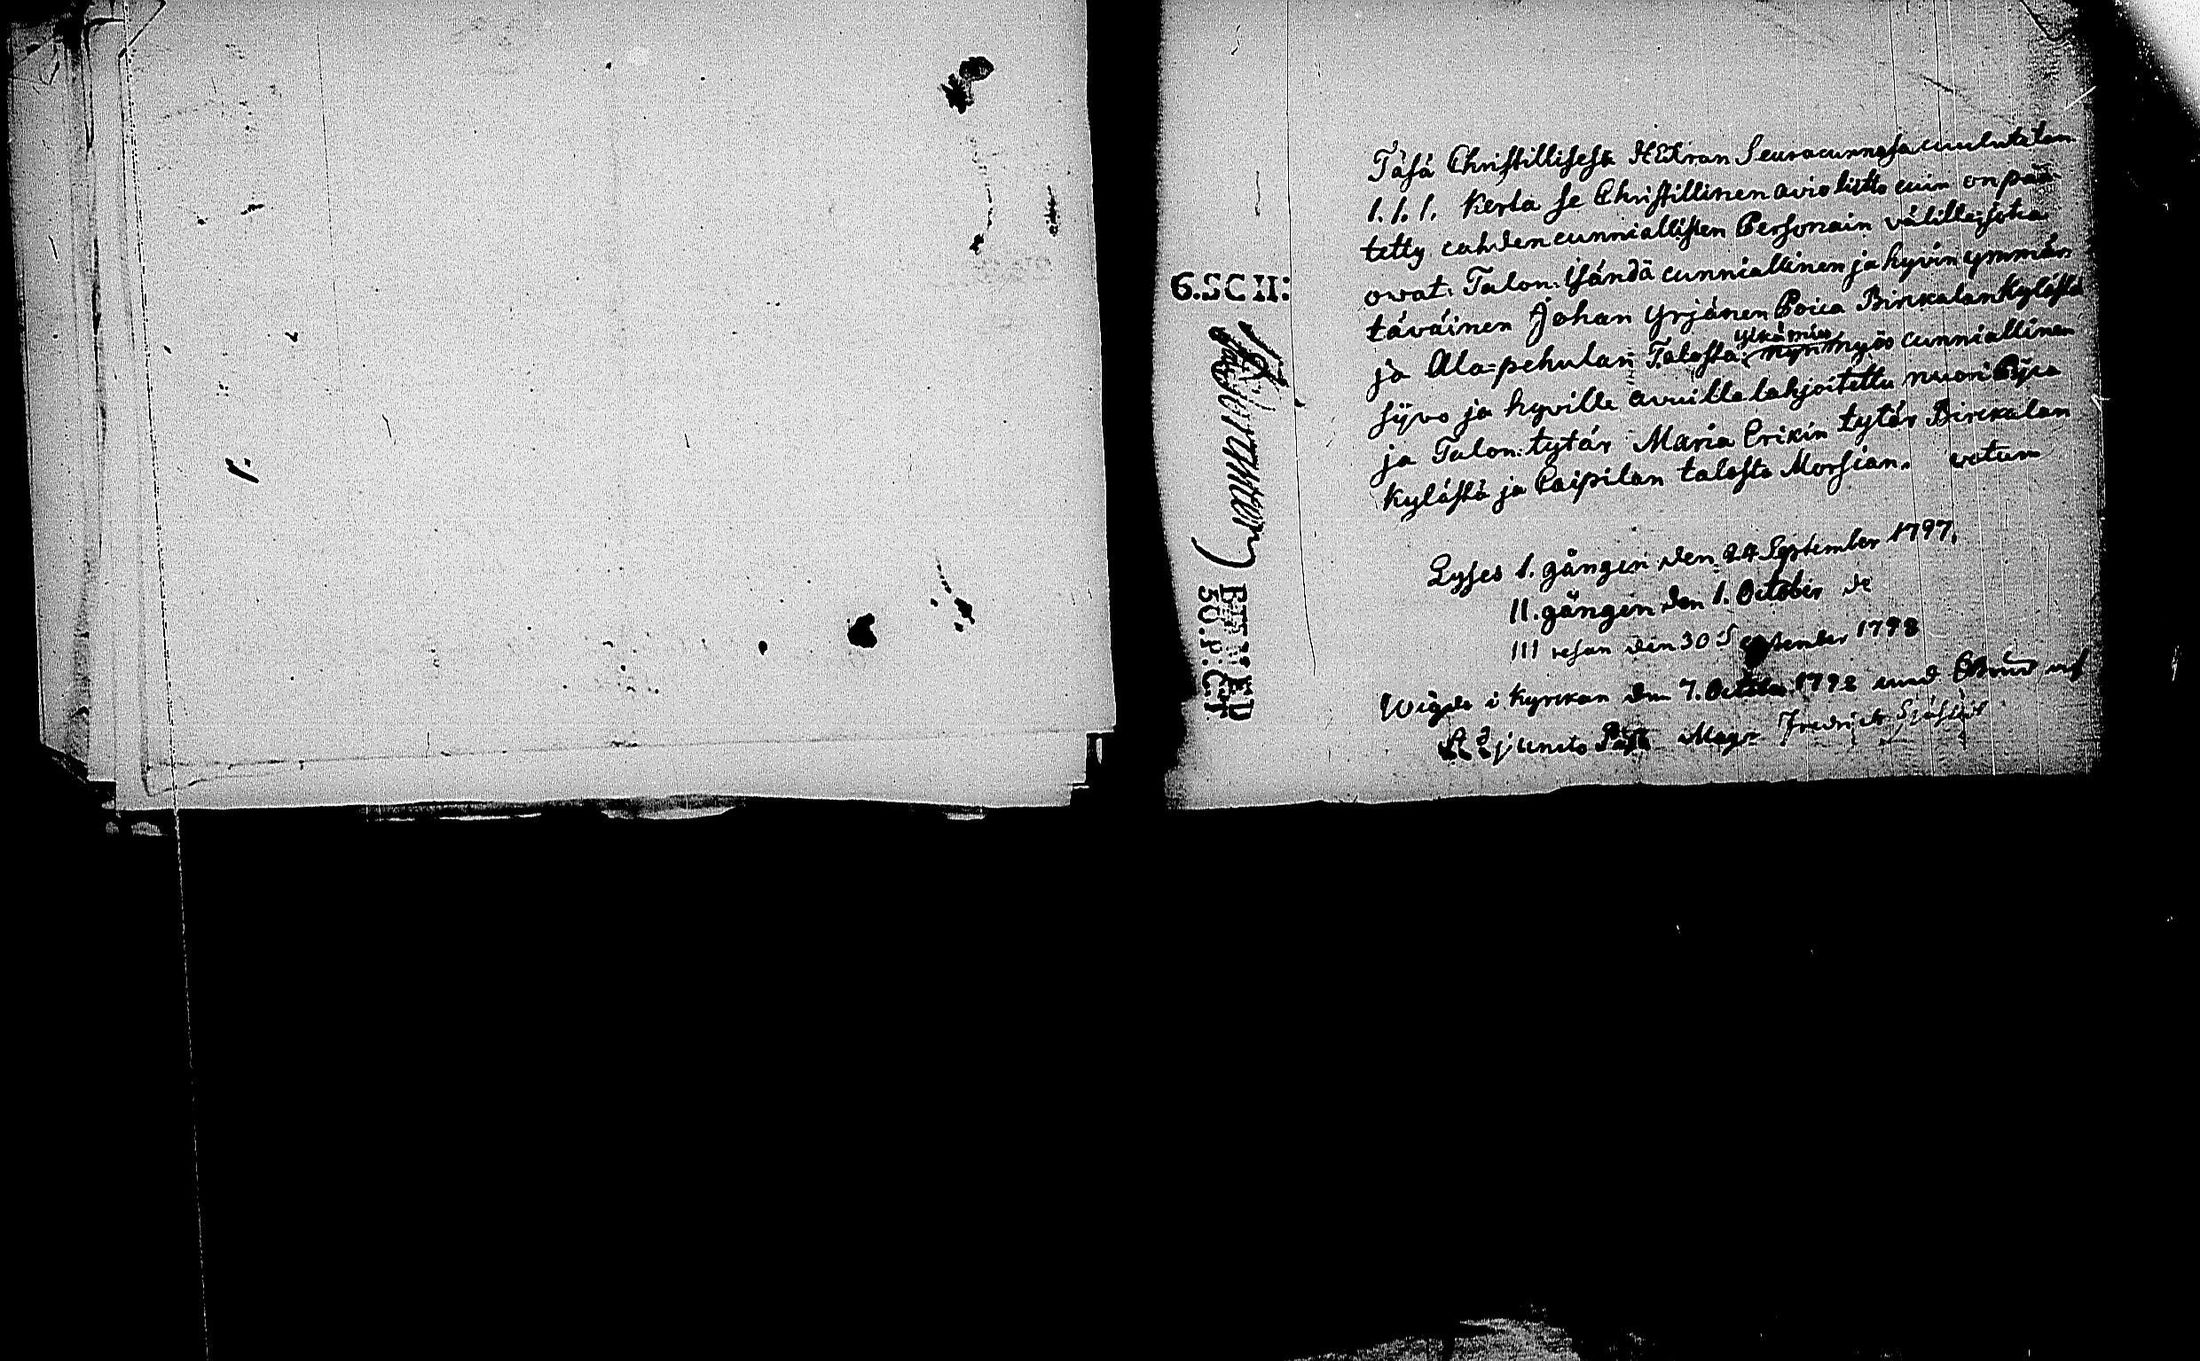 Täsä Christillisesä HErran Seuracunnasa cuulutetan
1. 1. 1. kerta se Christillinen avioliitto cuin on pää-
tetty cahden cunniallisen Personain välillä, jotca
owat: Talon: Isändä cunniallinen ja hyvin ymmär-
täväinen Johan Yrjänen Poica Birckalan Kylästä
ja Ala-pehulan Talosta, ylkämies
myös cunniallinen
siivo ja hyvillä avuilla lahjoitettu nuori Pijca
ja Talon: tytär Maria Erikin tytär Birckalan
kylästä ja Paipilan talosta Morsian.
Lyses 1. gången den 24 September 1797.
II. gången den 1. October de
III resan den 30 September 1798
Wigde i kyrckan den 7. October 1798
Fredrich
6.SC II: